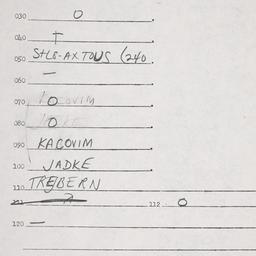 030 O
040 T
050 StLG-AXTOUS (240.
060 —
070 O KACOVIM
080 O JADKE
090 KACOVIM
100 JADKE
110 TREJBERN
111 112 O
120 —